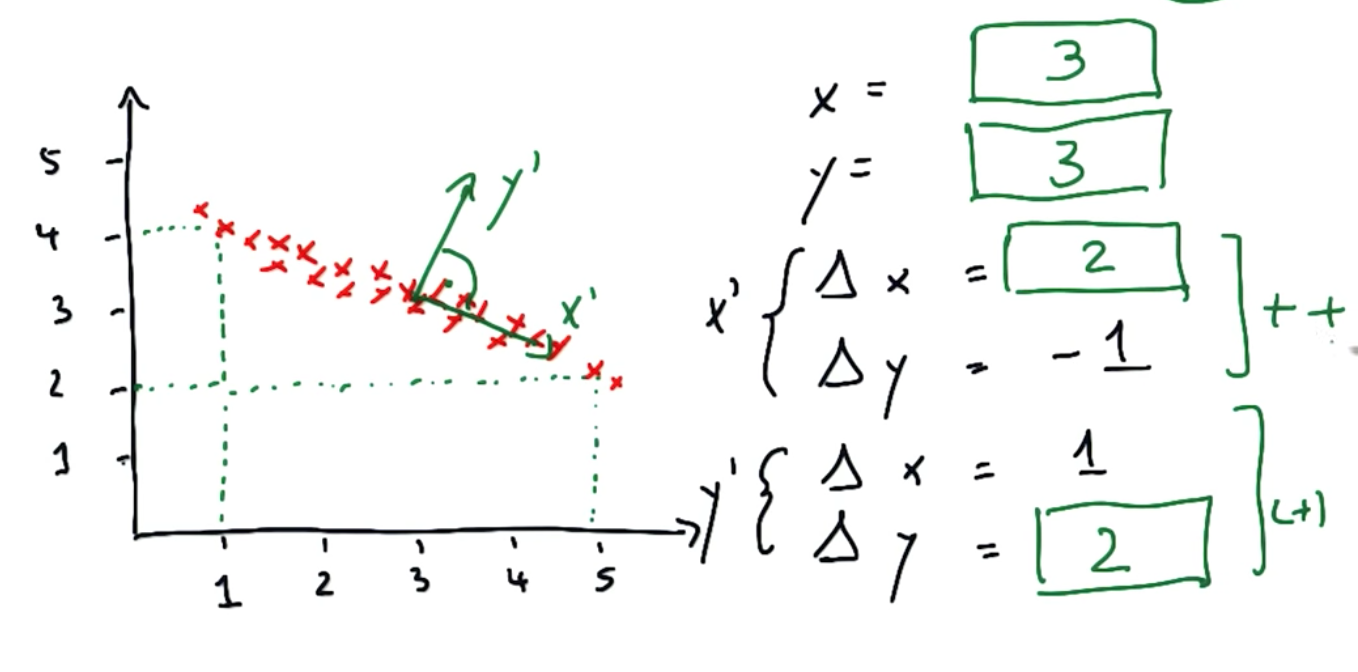 5
4
3
2
1
1 2 3 4 5
y'
x'
x = 3
y = 3
x' { Δ x = 2
Δ y = - 1
] + +
y' { Δ x = 1
Δ y = 2
] (+)